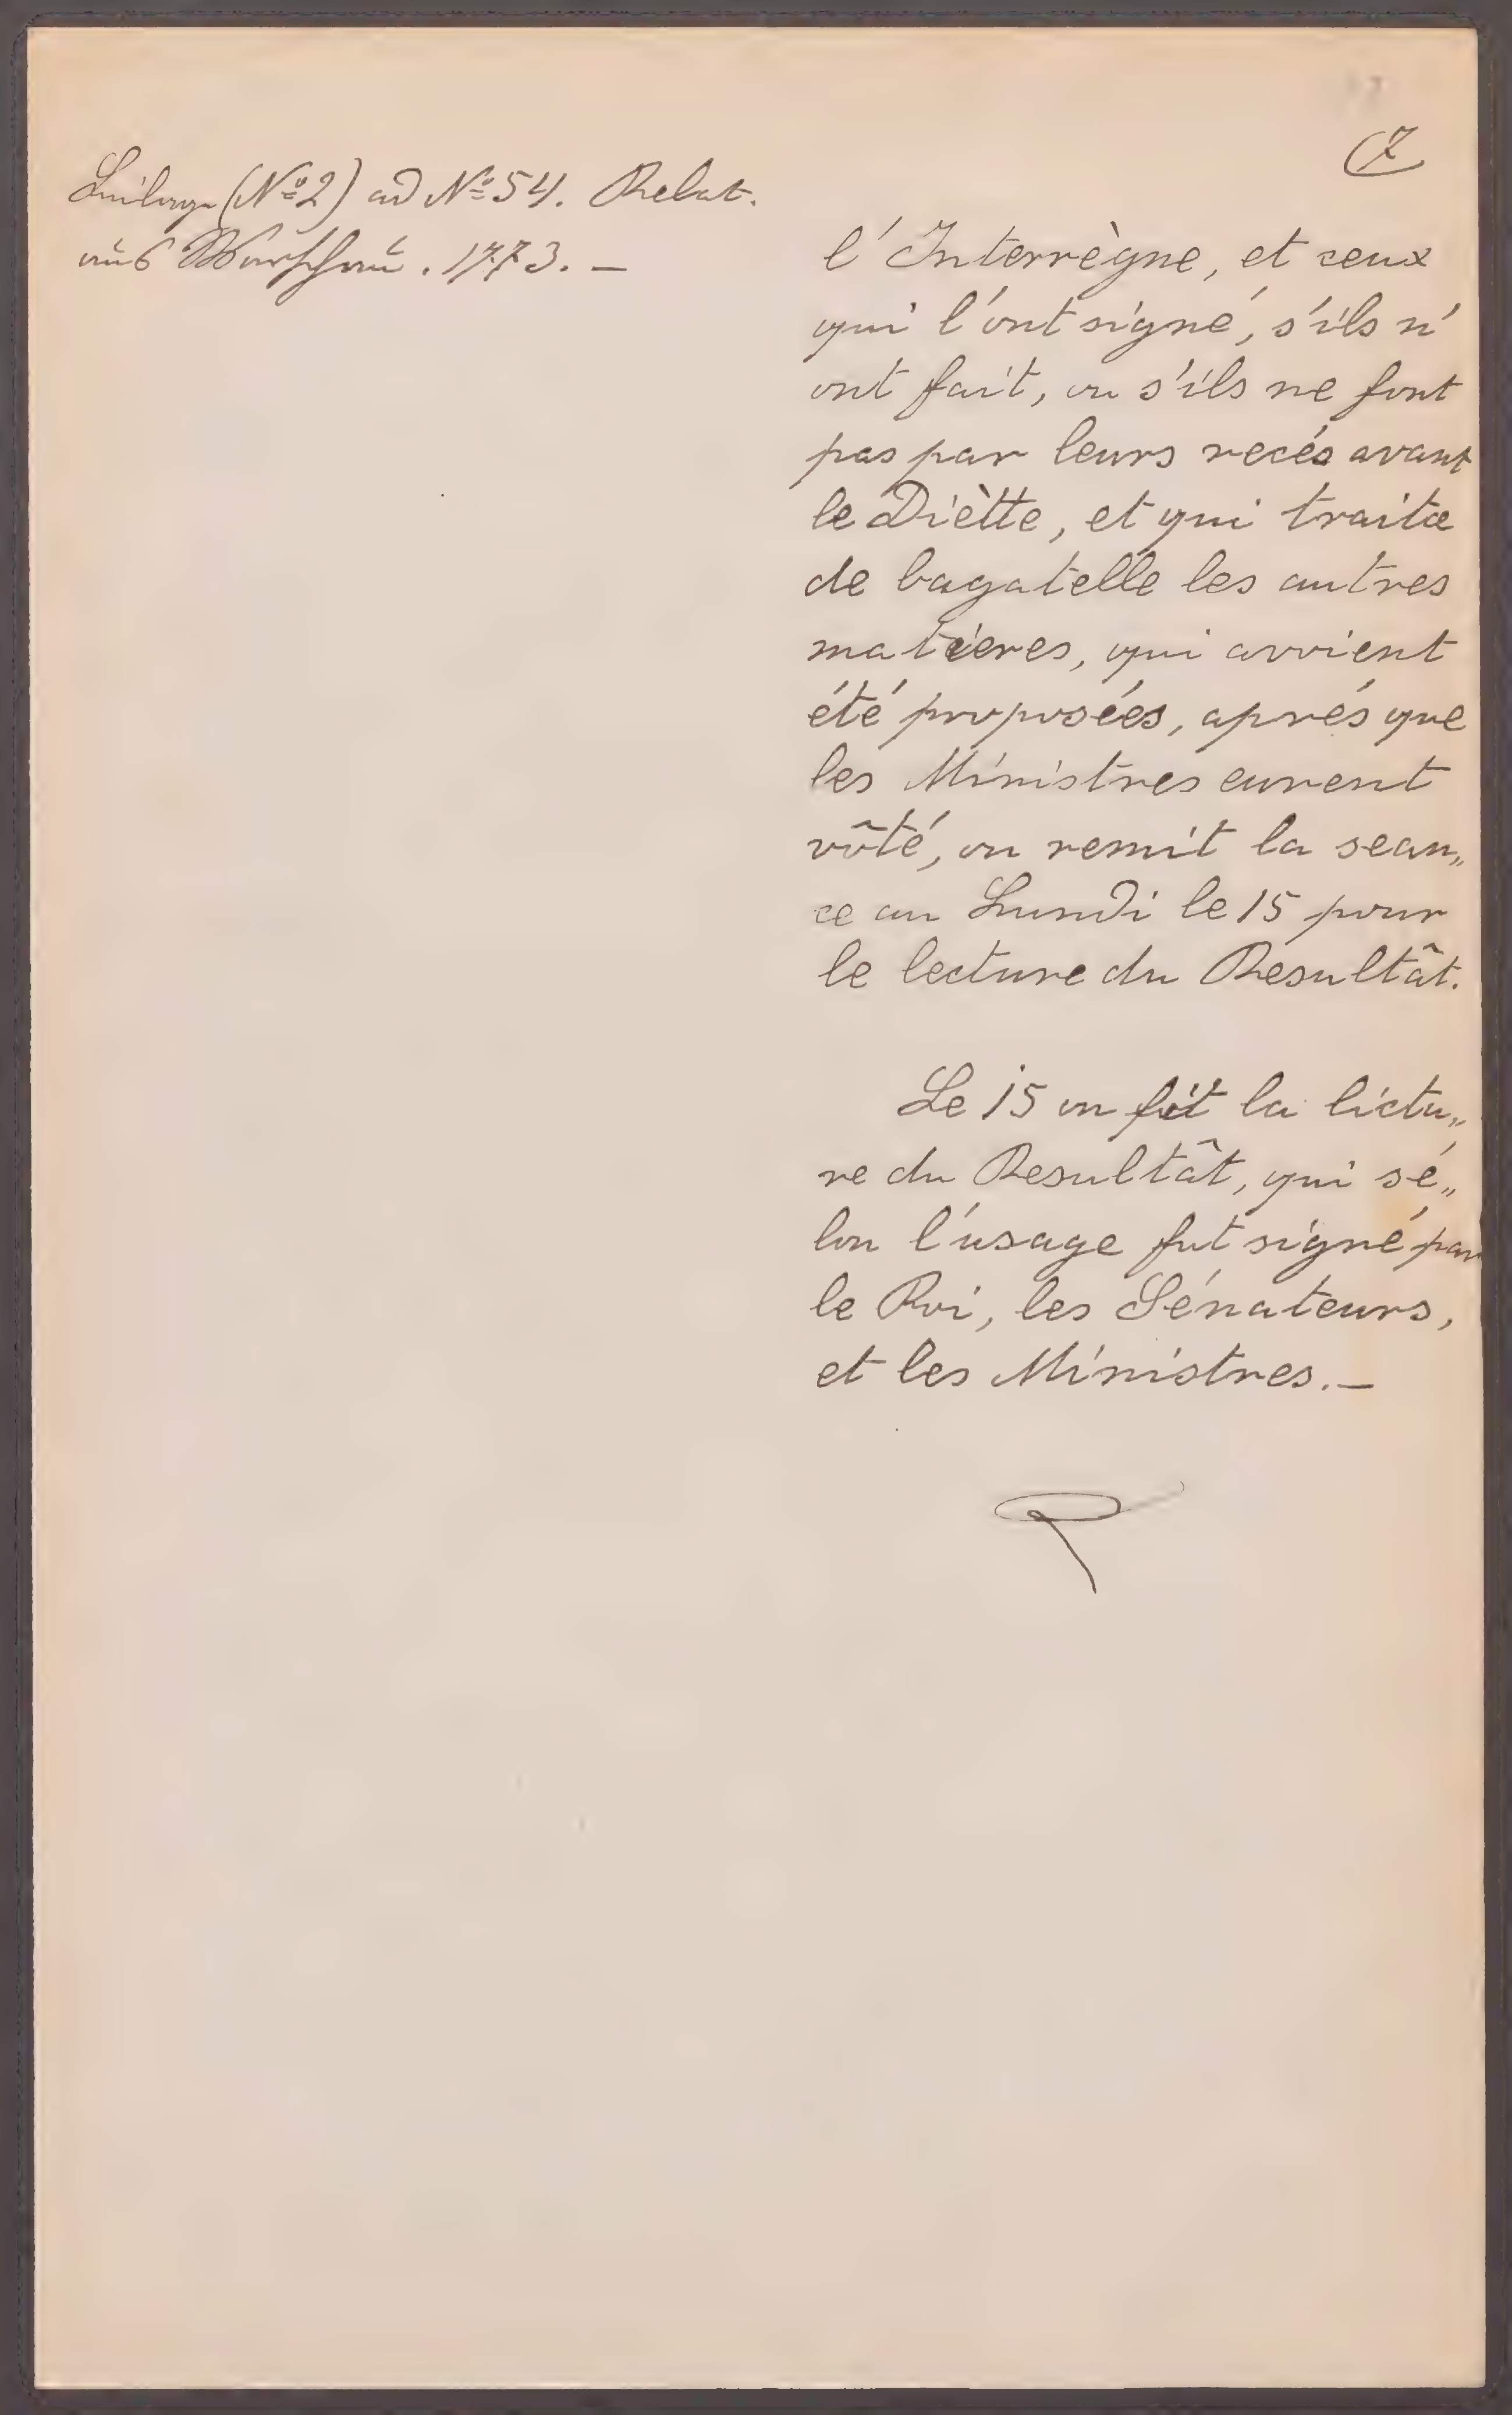 7
Beilage (Nº 2) ad Nº 54. Relat.
aus Warschau. 1773. —
l'Interrègne, et ceux
qui l'ont signé, s'ils n'
ont fait, ou s'ils ne font
pas par leurs recés avant
le Diètte, et qui traita
de bagatelle les autres
matieres, qui avoient
été proposées, aprés que
les Ministres eurent
vôté, on remit la sean„
ce au Lundi le 15 pour
le lecture du Resultât.
Le 15 on fit la lictu„
re du Resultât, qui sé„
lon l'usage fut signé par
le Roi, les Sénateurs,
et les Ministres. —